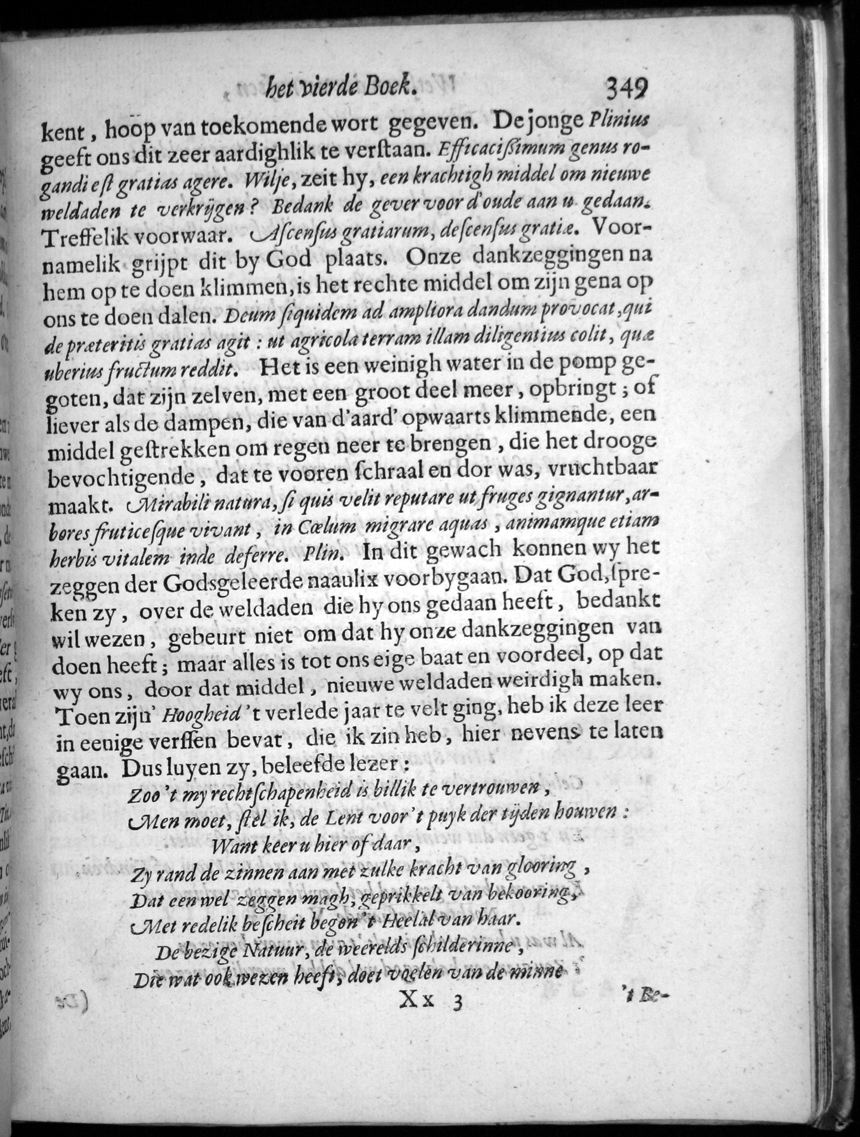 het vierde Boek. 349
kent, hoop van toekomende wort gegeven. De jonge Plinius
geeft ons dit zeer aardighlik te verſtaan. Efficacißimum genus ro-
gandi eſt gratias agere. Wilje, zeit hy, een krachtigh middel om nieuwe
weldaden te verkrijgen? Bedank de gever voor d'oude aan u gedaan.
Treffelik voorwaar. Aſcenſus gratiarum, deſcenſus gratiæ. Voor-
namelik grijpt dit by God plaats. Onze dankzeggingen na
hem op te doen klimmen, is het rechte middel om zijn gena op
ons te doen dalen. Deum ſiquidem ad ampliora dandum provocat, qui
de præteritis gratias agit: ut agricola terram illam diligentius colit, quæ
uberius fructum reddit. Het is een weinigh water in de pomp ge-
goten, dat zijn zelven, met een groot deel meer, opbringt; of
liever als de dampen, die van d'aard' opwaarts klimmende, een
middel geſtrekken om regen neer te brengen, die het drooge
bevochtigende, dat te vooren ſchraal en dor was, vruchtbaar
maakt. Mirabili natura, ſi quis velit reputare ut fruges gignantur, ar-
bores fruticeſque vivant, in Cœlum migrare aquas, animamque etiam
herbis vitalem inde deferre. Plin. In dit gewach konnen wy het
zeggen der Godsgeleerde naaulix voorbygaan. Dat God, ſpre-
ken zy, over de weldaden die hy ons gedaan heeft, bedankt
wil wezen, gebeurt niet om dat hy onze dankzeggingen van
doen heeft; maar alles is tot ons eige baat en voordeel, op dat
wy ons, door dat middel, nieuwe weldaden weirdigh maken.
Toen zijn' Hoogheid 't verlede jaar te velt ging, heb ik deze leer
in eenige verſſen bevat, die ik zin heb, hier nevens te laten
gaan. Dus luyen zy, beleefde lezer:
Zoo 't my rechtſchapenheid is billik te vertrouwen,
Men moet, ſtel ik, de Lent voor 't puyk der tijden houwen:
Want keer u hier of daar,
Zy rand de zinnen aan met zulke kracht van glooring,
Dat een wel zeggen magh, geprikkelt van bekooring,
Met redelik beſcheit begon 't Heelal van haar.
De bezige Natuur, de weerelds ſchilderinne,
Die wat ook wezen heeft, doet voelen van de minne
Xx 3 't Be-